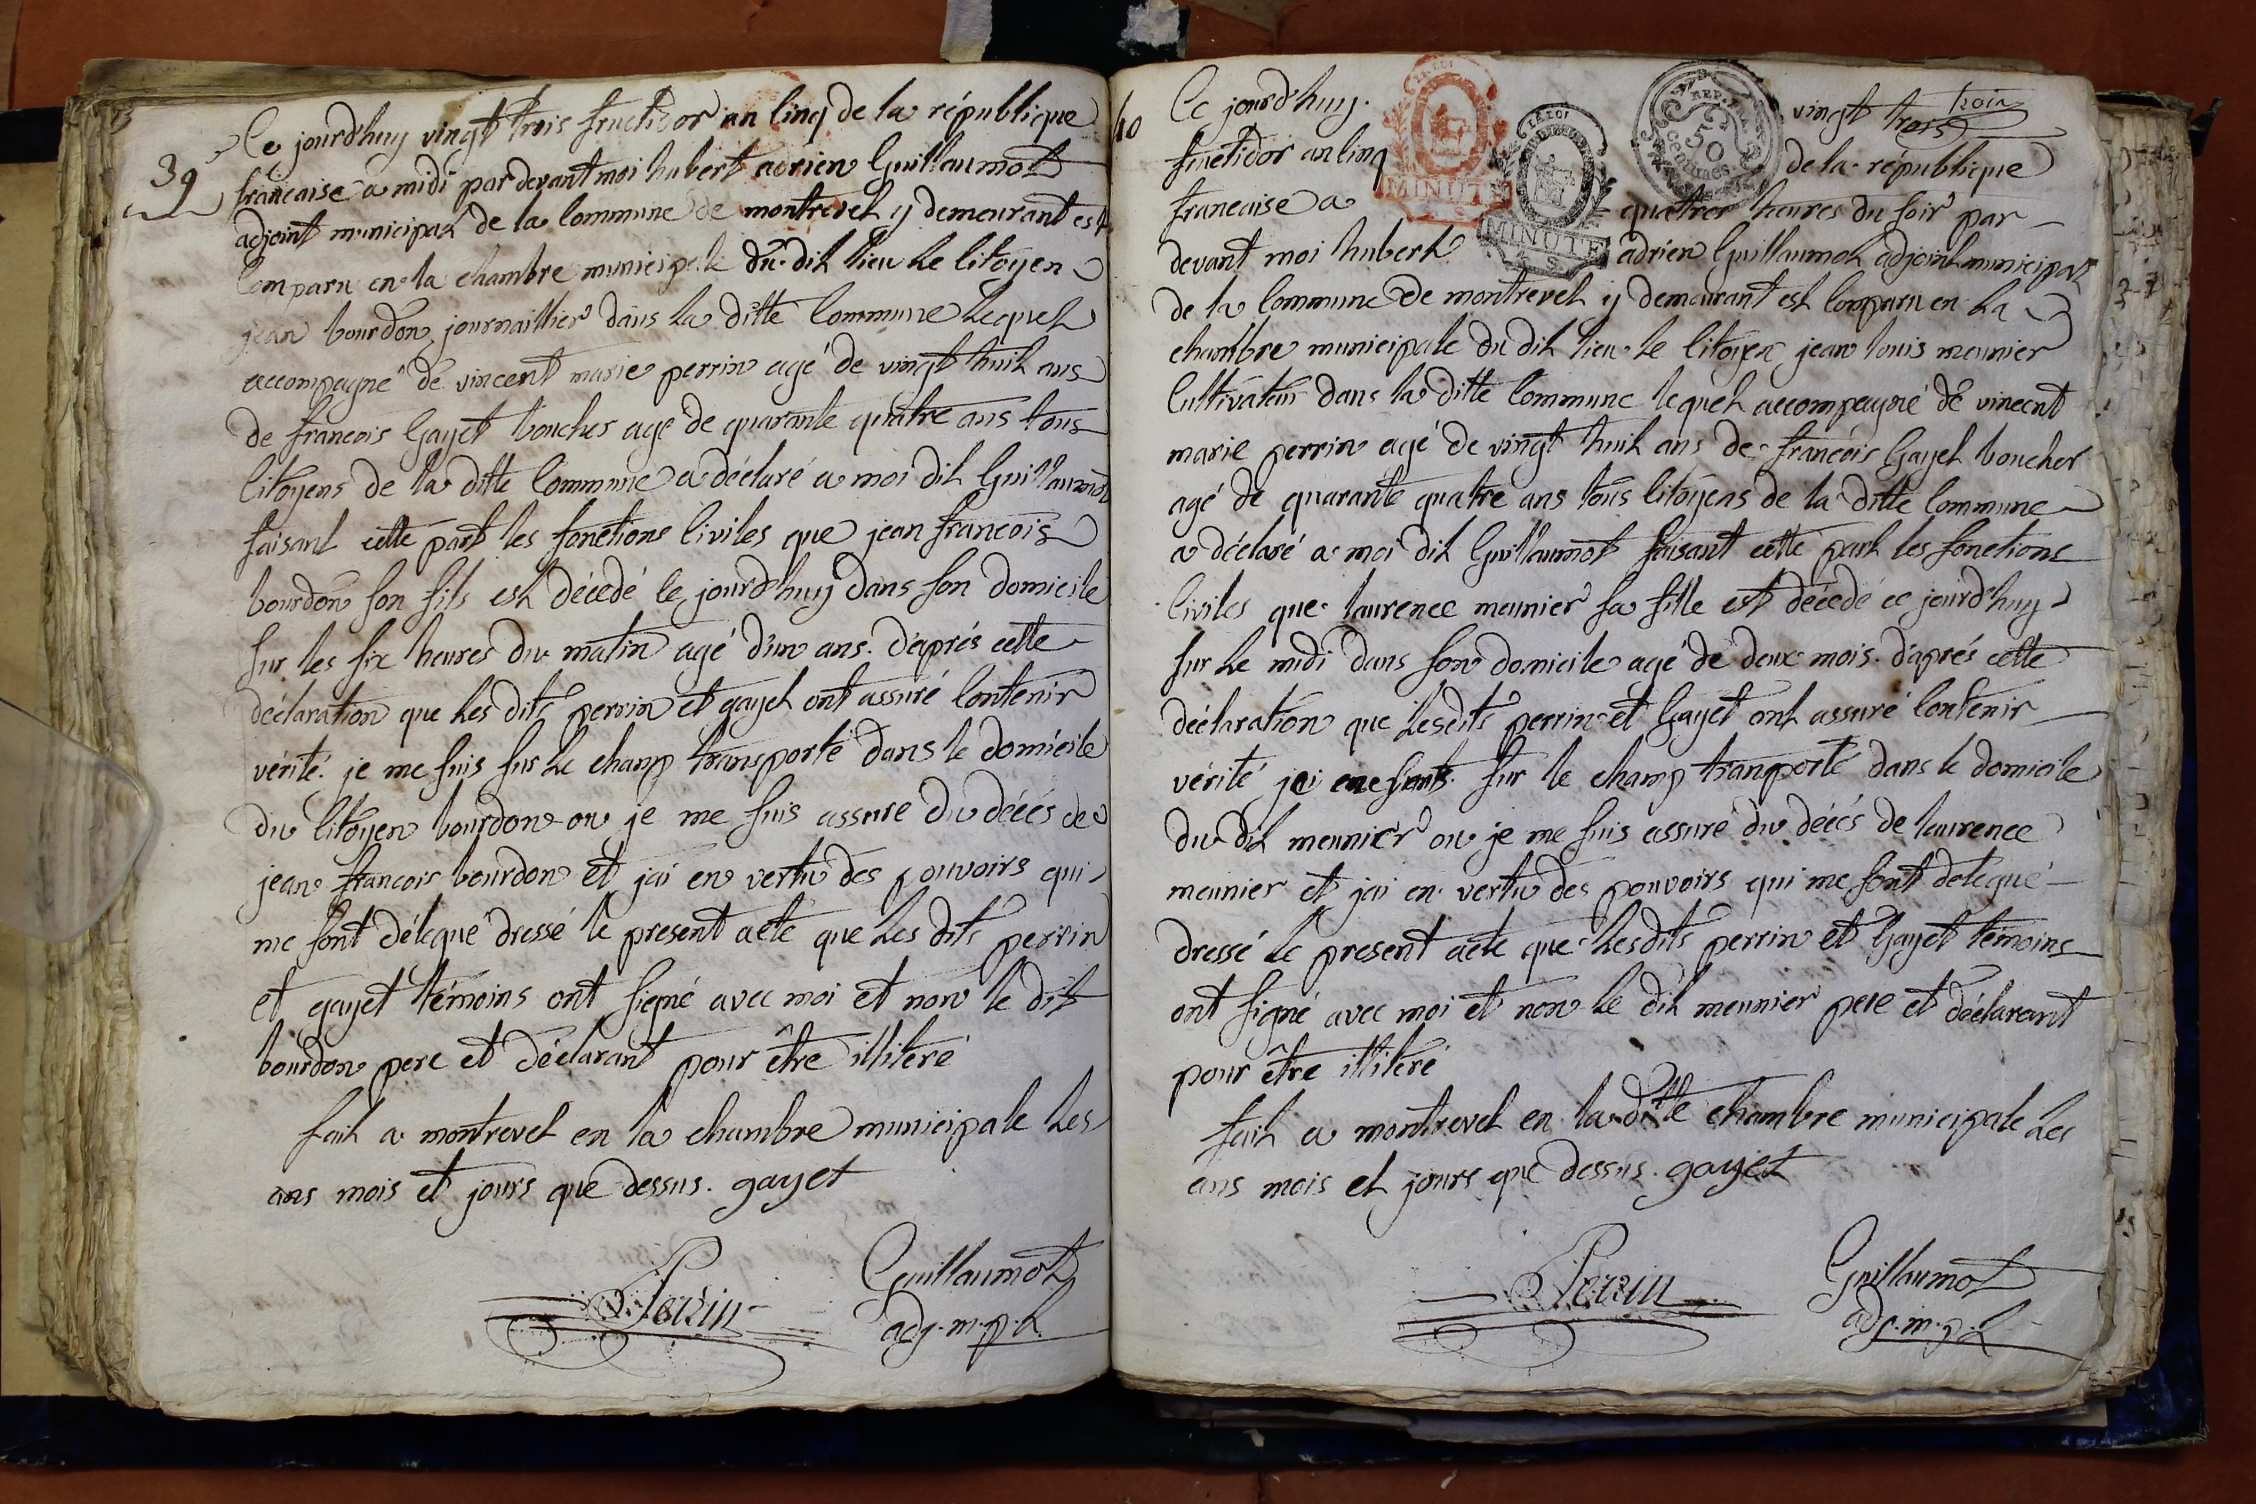 39
Ce jourd'huy vingt trois fructidor an cinq de la république
francaise a midi par devant moi hubert adrien Guillaumot
adjoint municipal de la Commune de montrevel y demeurant est
Comparu en la chambre municipale du dit lieu le Citoyen
jean bourdon journaillier dans la ditte Commune lequel
accompagné de vincent marie perrin agé de vingt huit ans
de francois Gayet boucher age de quarante quatre ans tous
Citoyens de la ditte Commune a déclaré a moi dit Guillaumot
faisant cette part les fonctions Civiles que jean francois
bourdon son fils est décedé ce jourd'huy dans son domicile
sur les six heures du matin agé d'un ans. d'aprés cette
déclaration que les dits perrin et gayet ont assuré Contenir
vérité. je me suis sur le champ transporté dans le domicile
du Citoyen bourdon ou je me suis assure du décés de
jean francois bourdon et jai en vertu des pouvoirs qui
me sont délegué dressé le present acte que les dits perrin
et gayet témoins ont signé avec moi et non le dit
bourdon pere et déclarant pour être illiteré
fait a montrevel en la chambre municipale les
ans mois et jours que dessus. gayet
Perrin
Guillaumot
adj.m.p.l
40
Ce jourd'huy vingt trois trois
LA LOI
MINUTE
LA LOI
MINUTE
REP. FRA.
50
centimes
fructidor an cinq de la république
francaise a quatres heures du soir par
devant moi hubert adrien Guillaumot adjoint municipal
de la Commune de montrevel y demeurant est Comparu en la
chambre municipale du dit lieu le Citoyen jean louis meunier
Cultivateur dans la ditte Commune lequel accompagné de vincent
marie perrin agé de vingt huit ans de francois Gayet boucher
agé de quarante quatre ans tous Citoyens de la ditte Commune
a déclaré a moi dit Guillaumot faisant cette part les fonctions
Civiles que laurence meunier sa fille est décedé ce jourd'huy
sur le midi dans son domicile age de deux mois. d'aprés cette
déclaration que lesdits perrin et Gayet ont assuré Contenir
vérité je me suis sur le champ tranporté dans le domicile
du dit meunier ou je me suis assuré du décés de laurence
meunier et jai en vertu des pouvoirs qui me sont delegué
dressé le present acte que lesdits perrin et Gayet témoins
ont signé avec moi et non le dit meunier pere et déclarant
pour être illiteré
fait a montrevel en la ditte chambre municipale les
ans mois et jours que dessus. gayet
Perrin
Guillaumot
adj.m.p.l